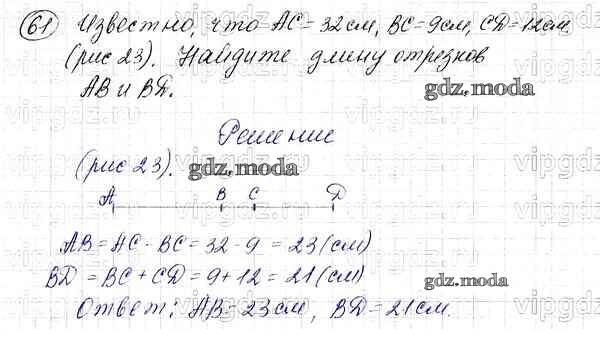 61 Известно, что AC = 32 см, BC = 9 см, CD = 12 см.
(рис 23). Найдите длину отрезков
AB и BD.
gdz.moda
Решение
(рис 23). gdz.moda
A B C D
AB = AC - BC = 32 - 9 = 23 (см)
BD = BC + CD = 9 + 12 = 21 (см)
gdz.moda
Ответ: AB = 23 см, BD = 21 см.